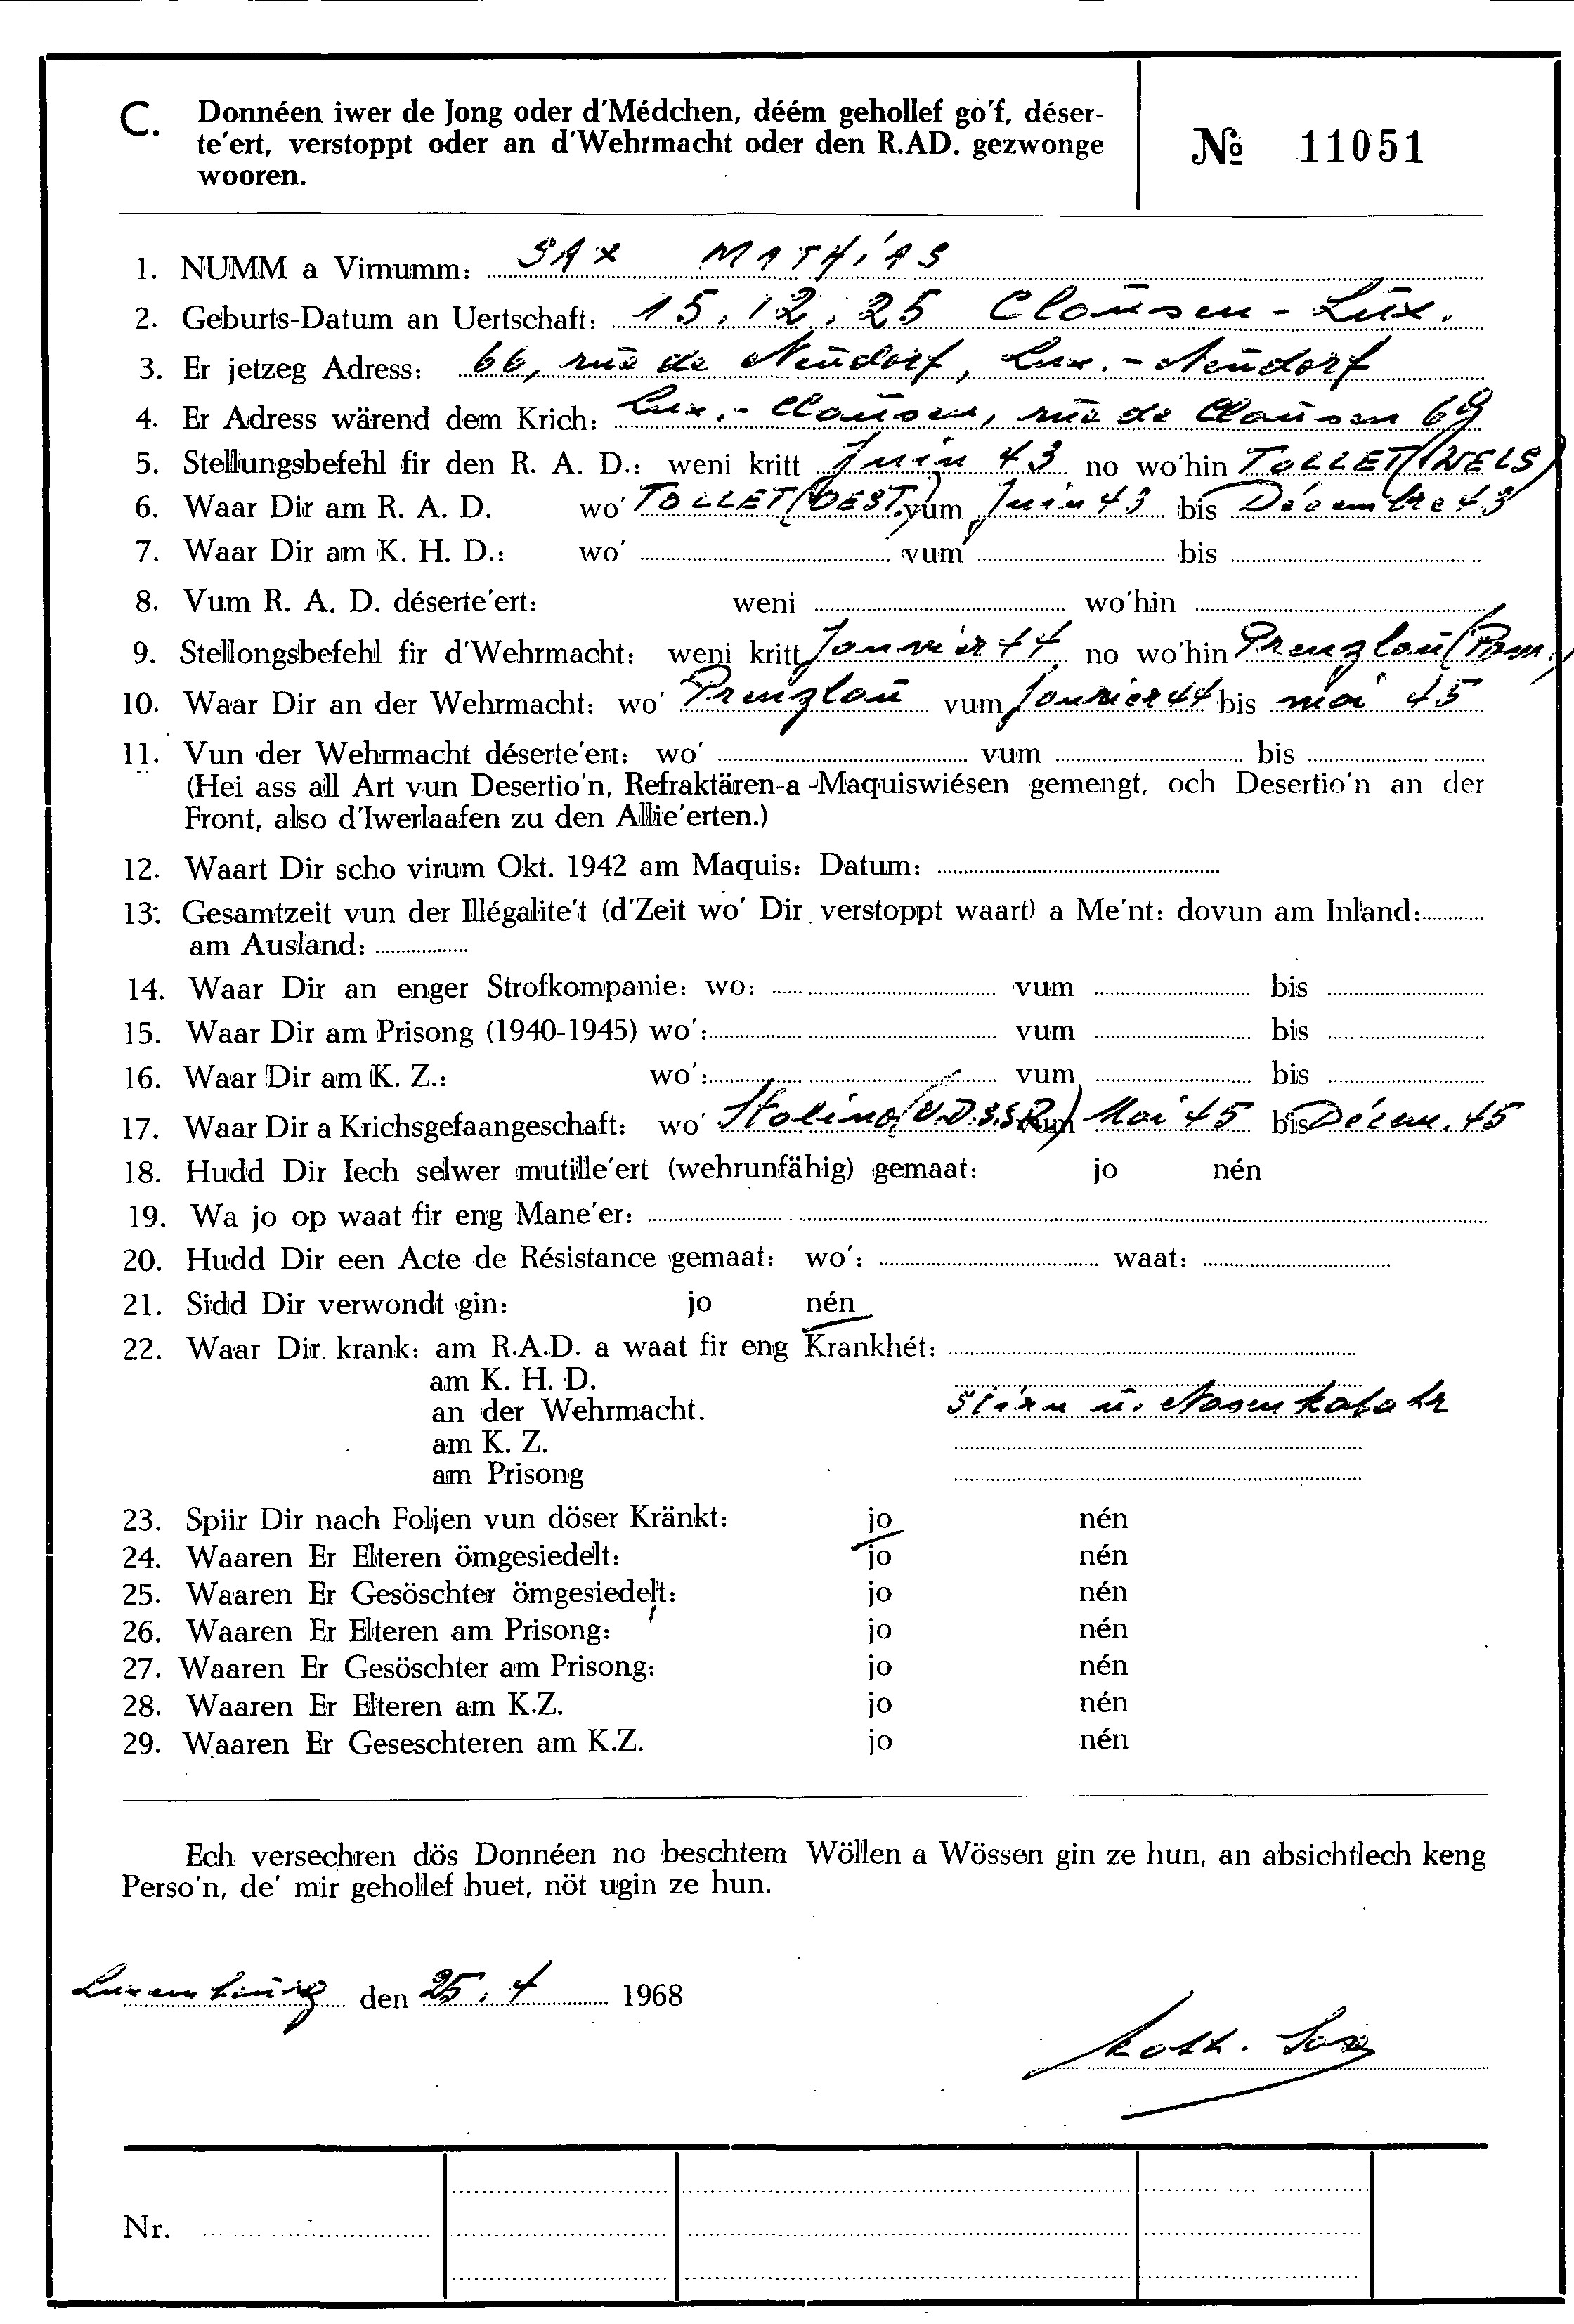 C. Donnéen iwer de Jong oder d'Médchen, déém gehollef go'f, déser-
te'ert, verstoppt oder an d'Wehrmacht oder den R.AD. gezwonge
wooren.
№ 11051
1. NUMM a Virnumm: SAX MATHIAS
2. Geburts-Datum an Uertschaft: 15.12.25 Clausen - Lux.
3. Er jetzeg Adress: 66, rue de Neudorf, Lux.-Neudorf
4. Er Adress wärend dem Krich: Lux.- Clausen, rue de Clausen 69
5. Stellungsbefehl fir den R. A. D.: weni kritt Juin 43 no wo'hin TOLLET (WELS)
6. Waar Dir am R. A. D. wo' TOLLET (OEST.) vum Juin 43 bis Décembre 43
7. Waar Dir am K. H. D.: wo' vum bis
8. Vum R. A. D. déserte'ert: weni wo'hin
9. Stellongsbefehl fir d'Wehrmacht: weni kritt Janvier 44 no wo'hin Prenzlau (Pom.)
10. Waar Dir an der Wehrmacht: wo' Prenzlau vum Janvier 44 bis mai 45
11. Vun der Wehrmacht déserte'ert: wo' vum bis
(Hei ass all Art vun Desertio'n, Refraktären-a -Maquiswiésen gemengt, och Desertio'n an der
Front, also d'Iwerlaafen zu den Allie'erten.)
12. Waart Dir scho virum Okt. 1942 am Maquis: Datum:
13. Gesamtzeit vun der Illégalite't (d'Zeit wo' Dir verstoppt waart) a Me'nt: dovun am Inland:
am Ausland:
14. Waar Dir an enger Strofkompanie: wo: vum bis
15. Waar Dir am Prisong (1940-1945) wo': vum bis
16. Waar Dir am K. Z.: wo': vum bis
17. Waar Dir a Krichsgefaangeschaft: wo' Stalino (U.D.S.S.R.) vum Mai 45 bis Décem. 45
18. Hudd Dir Iech selwer mutille'ert (wehrunfähig) gemaat: jo nén
19. Wa jo op waat fir eng Mane'er:
20. Hudd Dir een Acte de Résistance gemaat: wo': waat:
21. Sidd Dir verwondt gin: jo nén
22. Waar Dir krank: am R.A.D. a waat fir eng Krankhét:
am K. H. D.
an der Wehrmacht. Stirn u. Nasenkatahr
am K. Z.
am Prisong
23. Spiir Dir nach Foljen vun döser Kränkt: jo nén
24. Waaren Er Elteren ömgesiedelt: jo nén
25. Waaren Er Gesöschter ömgesiedelt: jo nén
26. Waaren Er Elteren am Prisong: jo nén
27. Waaren Er Gesöschter am Prisong: jo nén
28. Waaren Er Elteren am K.Z. jo nén
29. Waaren Er Geseschteren am K.Z. jo nén
Ech versechren dös Donnéen no beschtem Wöllen a Wössen gin ze hun, an absichtlech keng
Perso'n, de' mir gehollef huet, nöt ugin ze hun.
Luxembourg den 25. 4 1968
Math. Sax
Nr.